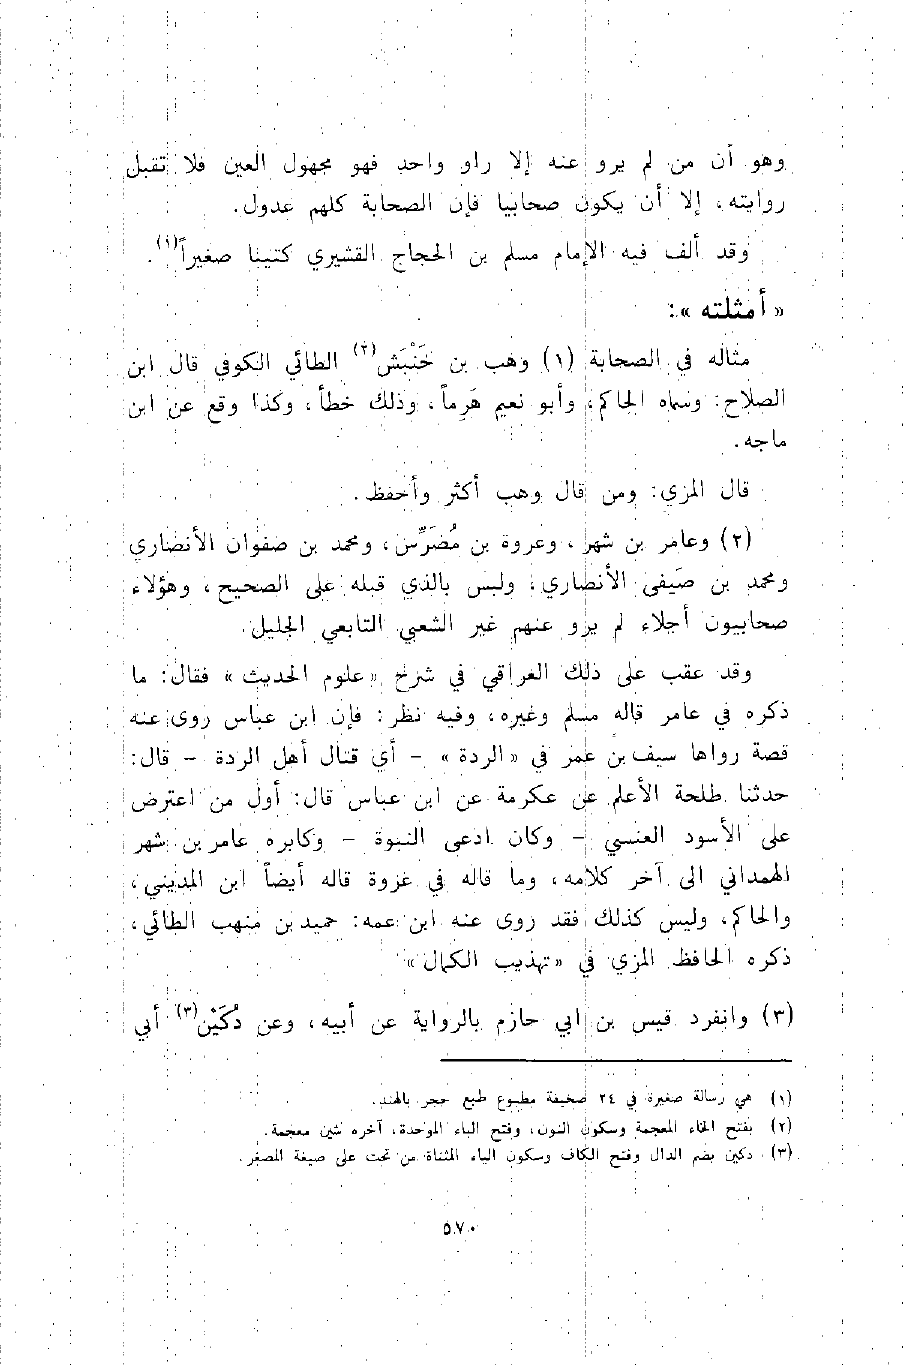 وهو أن من لم يرو عنه إلا راو واحد فهو مجهول العين فلا تقبل
روايته، إلا أن يكون صحابيا فإن الصحابة كلهم عدول.
وقد ألف فيه الإمام مسلم بن الحجاج القشيري كتيبا صغيراً(١).
« أمثلته »:
مثاله في الصحابة (١) وهب بن خَنْبَش(٢) الطائي الكوفي قال ابن
الصلاح: وسماه الحاكم، وأبو نعيم هَرِماً، وذلك خطأ، وكذا وقع عن ابن
ماجه.
قال المزي: ومن قال وهب أكثر وأحفظ.
(٢) وعامر بن شهر، وعروة بن مُضَرِّس، ومحمد بن صفوان الأنصاري
ومحمد بن صَيفى الأنصاري، وليس بالذي قبله على الصحيح، وهؤلاء
صحابيون أجلاء لم يرو عنهم غير الشعبي التابعي الجليل.
وقد عقب على ذلك العراقي في شرح «علوم الحديث » فقال: ما
ذكره في عامر قاله مسلم وغيره، وفيه نظر: فإن ابن عباس روى عنه
قصة رواها سيف بن عمر في « الردة » - أي قتال أهل الردة - قال:
حدثنا طلحة الأعلم عن عكرمة عن ابن عباس قال: أول من اعترض
على الأسود العنسي - وكان ادعى النبوة - وكابره عامر بن شهر
الهمداني الى آخر كلامه، وما قاله في عروة قاله أيضاً ابن المديني،
والحاكم، وليس كذلك فقد روى عنه ابن عمه: حميد بن منهب الطائي،
ذكره الحافظ المزي في «تهذيب الكمال»
(٣) وانفرد قيس بن ابي حازم بالرواية عن أبيه، وعن دُكَيْن(٣) أبي
(١) هي رسالة صغيرة في ٢٤ صحيفة مطبوع طبع حجر بالهند.
(٢) بفتح الخاء المعجمة وسكون النون، وفتح الباء الموحدة، آخره شين معجمة.
(٣) دكين بضم الدال وفتح الكاف وسكون الياء المثناة من تحت على صيغة المصغر.
٥٧٠